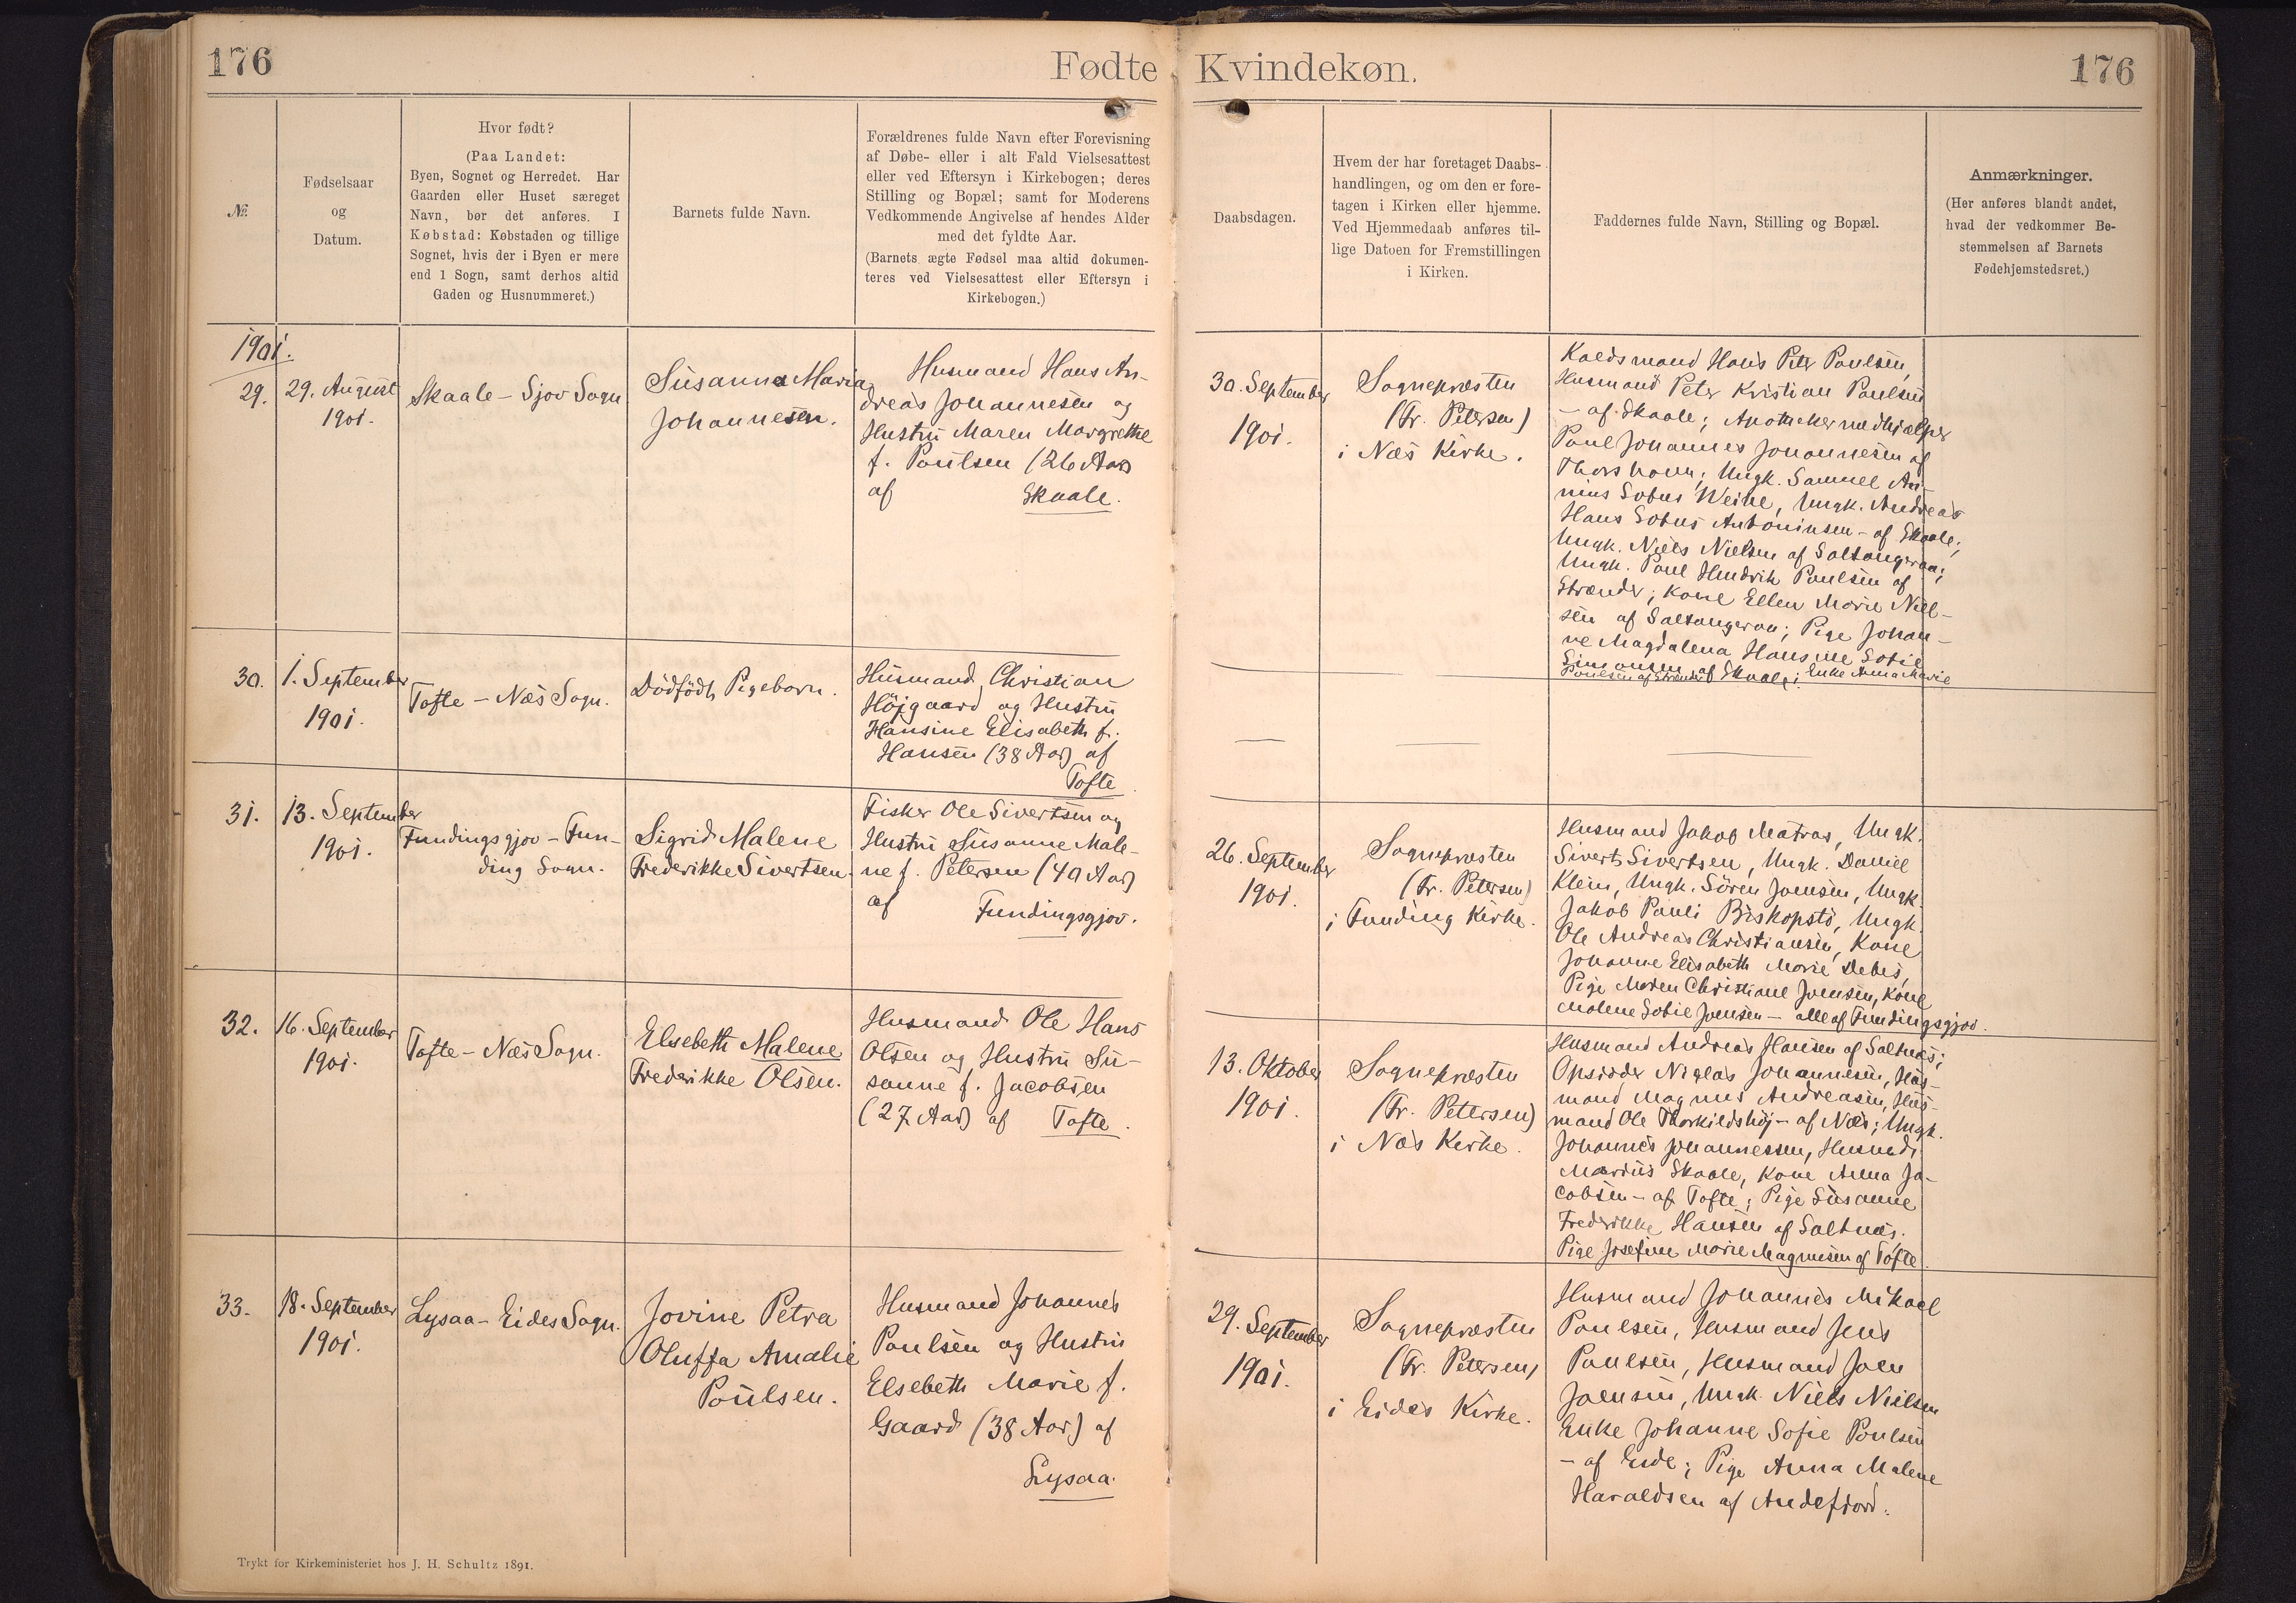 176
Fødte
Kvindekøn.
176
№.
Fødselsaar
og
Datum.
Hvor født?
(Paa Landet:
Byen, Sognet og Herredet. Har
Gaarden eller Huset særeget
Navn, bør det anføres. I
Købstad: Købstaden og tillige
Sognet, hvis der i Byen er mere
end 1 Sogn, samt derhos altid
Gaden og Husnummeret.)
Barnets fulde Navn.
Forældrenes fulde Navn efter Forevisning
af Døbe- eller i alt Fald Vielsesattest
eller ved Eftersyn i Kirkebogen; deres
Stilling og Bopæl; samt for Moderens
Vedkommende Angivelse af hendes Alder
med det fyldte Aar.
(Barnets ægte Fødsel maa altid dokumen-
teres ved Vielsesattest eller Eftersyn i
Kirkebogen.)
Daabsdagen.
Hvem der har foretaget Daabs-
handlingen, og om den er fore-
tagen i Kirken eller hjemme.
Ved Hjemmedaab anføres til-
lige Datoen for Fremstillingen
i Kirken.
Faddernes fulde Navn, Stilling og Bopæl.
Anmærkninger.
(Her anføres blandt andet,
hvad der vedkommer Be-
stemmelsen af Barnets
Fødehjemstedsret.)
1901.
29.
29. August
1901.
Skaale - Sjov Sogn
Susanna Maria
Johannesen.
Husmand Hans An-
dreas Johannesen og
Hustru Maren Margrethe
f. Poulsen (26 Aar)
af Skaale.
30. September
1901.
Sognepræsten
(Fr. Petersen)
i Næs Kirke.
Husmand Peter Kristian Paulsen
- af Skaale; Apothekermedhjælper
Poul Johannes Johannesen af
Thorshavn; Ungk. Samuel An-
Ungk. Andreas
Hans Sofus Antoninsen - af Skaale;
Ungk. Niels Nielsen af Saltangeraa;
Ungk. Poul Hendrik Poulsen af
Strænder; Kone Ellen Marie Niel-
sen af Saltangeraa; Pige Johan-
ne Magdalena Hansine Sofie
Simonsen af Skaale; Enke Anna Marie
Poulsen af Strænder
30.
1. September
1901.
Tofte - Næs Sogn.
Dödfödt Pigebarn.
Husmand Christian
Höjgaard og Hustru
Hansine Elisabeth f.
Hansen (38 Aar) af
Tofte
31.
13. September
1901.
Fundingsgjov - Fun-
ding Sogn.
Sigrid Malene
Frederikke Sivertsen.
Fisker Ole Sivertsen og
Hustru Susanne Male-
ne f. Petersen (40 Aar)
af Fundingsgjov.
26. September
1901.
Sognepræsten
(Fr. Petersen)
i Funding Kirke.
Husmand Jakob Matras, Ungk.
Sivert Sivertsen, Ungk. Daniel
Klein, Ungk. Sören Joensen, Ungk.
Jakob Pauli Biskopstö, Ungk.
Ole Andreas Christiansen, Kone
Johanne Elisabeth Marie Debes,
Pige Maren Christiane Joensen, Kone
Malene Sofie Joensen - alle af Fundingsgjov.
32.
16. September
1901.
Tofte - Næs Sogn.
Elsebeth Malene
Frederikke Olsen.
Husmand Ole Hans
Olsen og Hustru Su-
sanne f. Jacobsen
(27 Aar) af Tofte.
13. Oktober
1901.
Sognepræsten
(Fr. Petersen)
i Næs Kirke.
Husmand Andreas Hansen af Saltnæs;
Opsidder Niclas Johannesen, Hus-
mand Magnus Andreasen, Hus-
mand Ole Thorkildshöj - af Næs; Ungk.
Johannes Johannessen, Husmd.
Marius Skaale, Kone Anna Ja-
cobsen - af Tofte; Pige Susanne
Frederikke Hansen af Saltnæs.
Pige Josefine Marie Magnusen af Tofte.
33.
18. September
1901.
Lysaa - Eides Sogn.
Jovine Petra
Oluffa Amalie
Poulsen.
Husmand Johannes
Poulsen og Hustru
Elsebeth Marie f.
Gaard (38 Aar) af
Lysaa.
29. September
1901.
Sognepræsten
(Fr. Petersen)
i Eides Kirke.
Husmand Johannes Mikael
Poulsen, Husmand Jens
Paulsen, Husmand Joen
Joensen, Ungk. Niels Nielsen
Enke Johanne Sofie Poulsen
- af Eide; Pige Anna Malene
Haraldsen af Andefjord.
Trykt for Kirkeministeriet hos J. H. Schultz 1891.